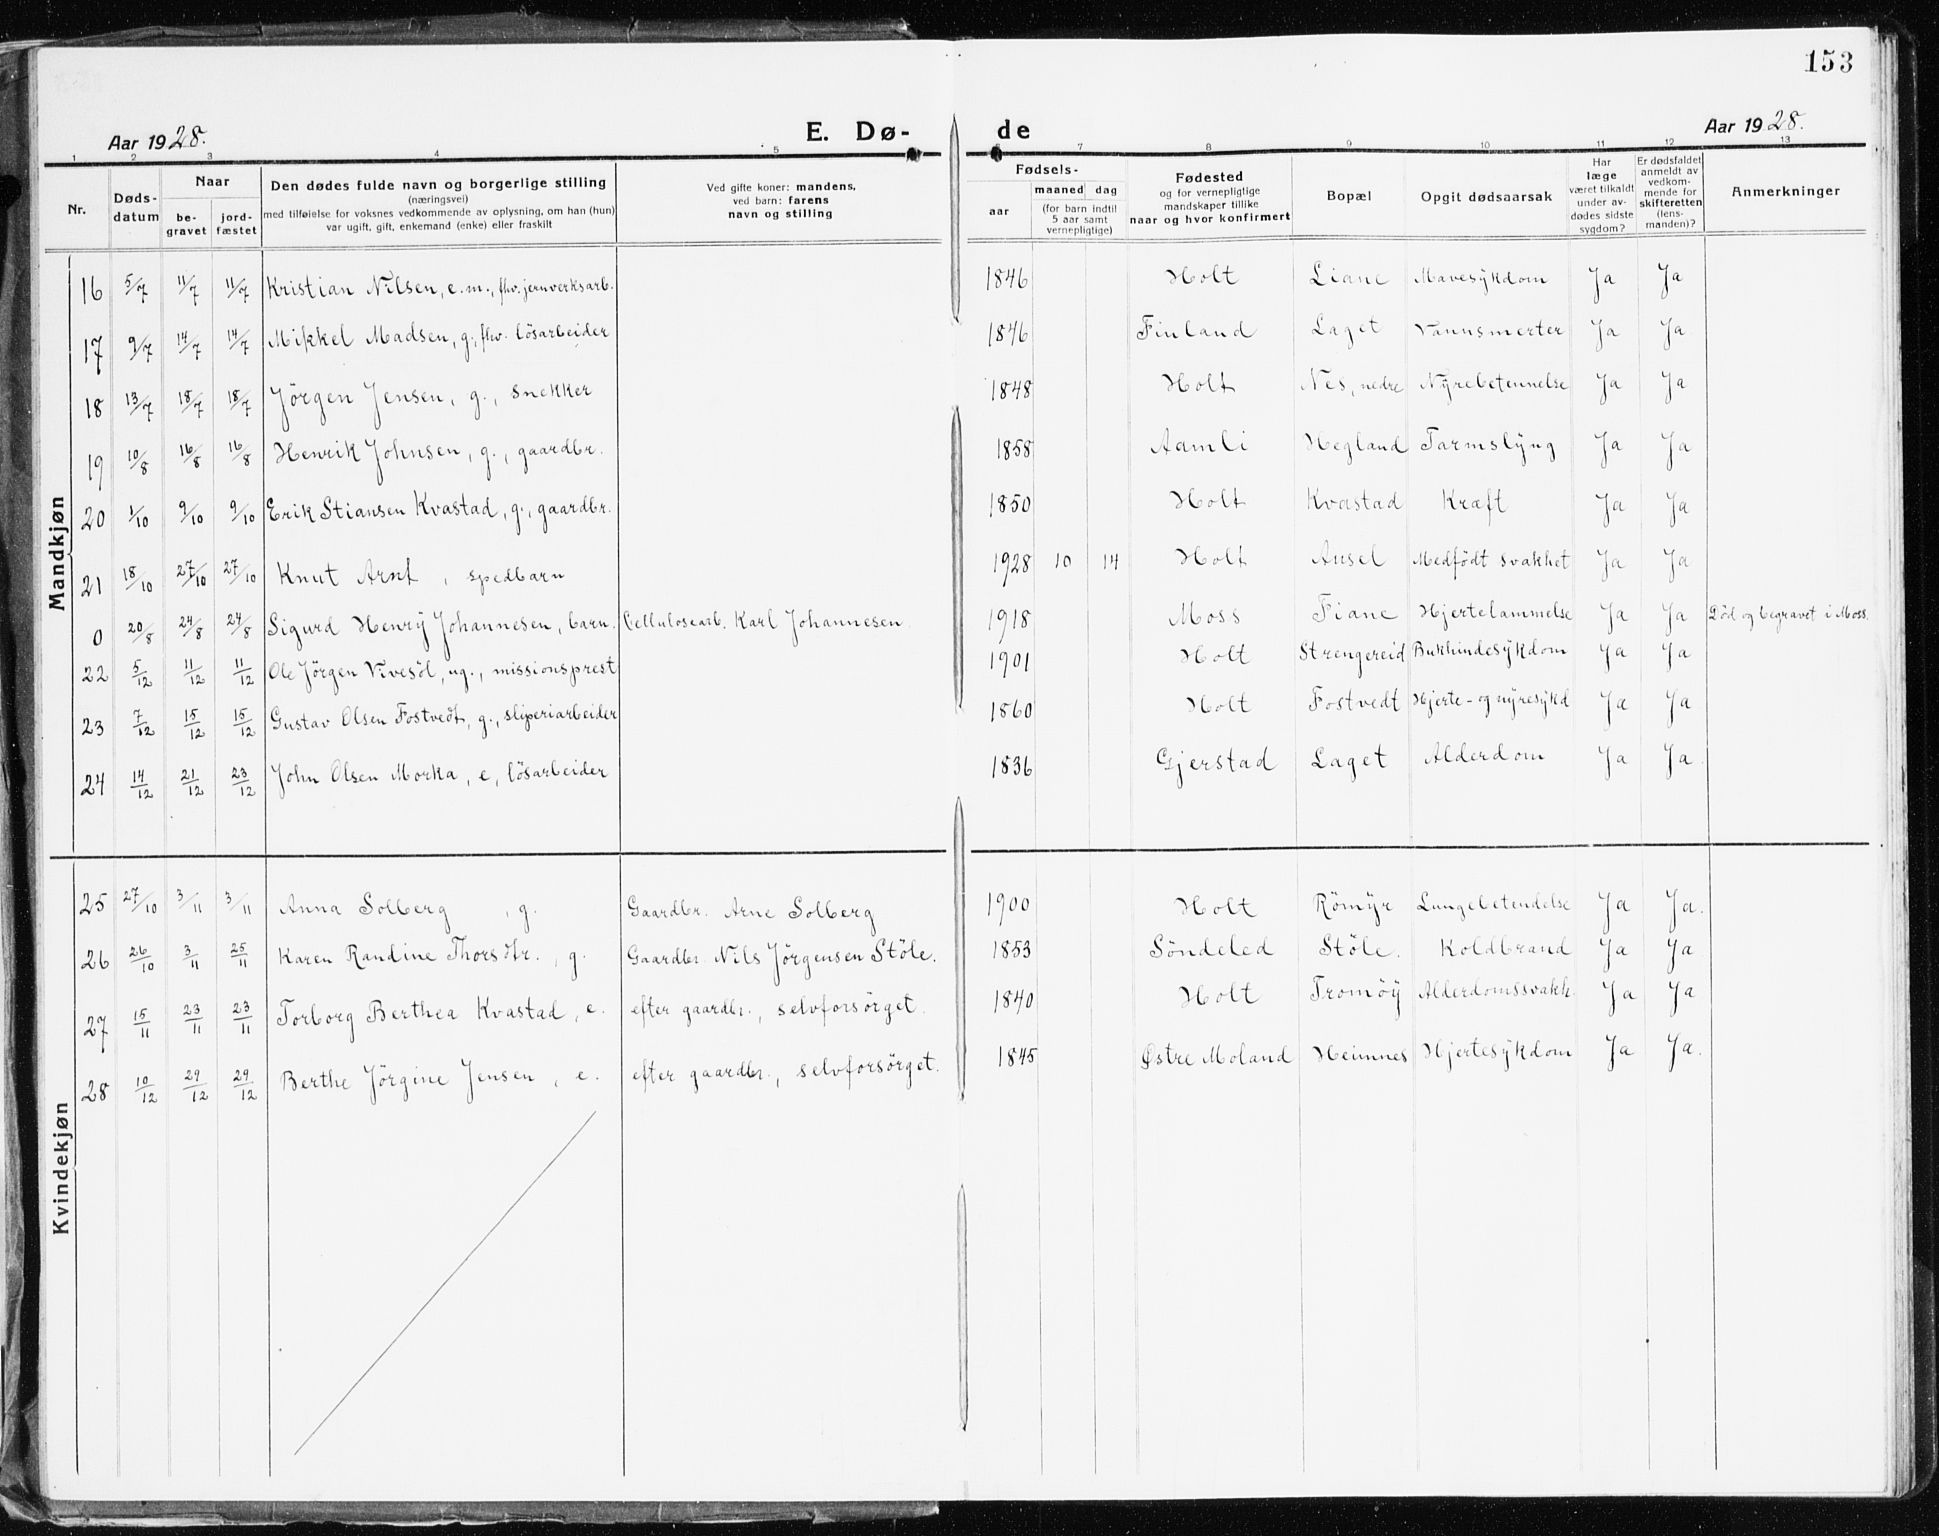 153
Aar 1928. E. Dø- de Aar 1928.
1 2 3 4 5 6 7 8 9 10 11 12 13
Nr. Døds-datum Naar be-gravet jord-fæstet Den dødes fulde navn og borgerlige stilling (næringsvei) med tilføielse for voksnes vedkommende av oplysning, om han (hun) var ugift, gift, enkemand (enke) eller fraskilt Ved gifte koner: mandens, ved barn: farens navn og stilling Fødsels- aar maaned dag (for barn indtil 5 aar samt vernepligtige) Fødested og for vernepligtige mandskaper tillike naar og hvor konfirmert Bopæl Opgit dødsaarsak Har læge været tilkaldt under av-dødes sidste sygdom? Er dødsfaldet anmeldt av vedkom-mende for skifteretten (lens-manden)? Anmerkninger
Mandkjøn
16 5/7 11/7 11/7 Kristian Nilsen, e.m., fhv. jernverksarb. 1846 Holt Liane Mavesykdom Ja Ja
17 9/7 14/7 14/7 Mikkel Madsen, g., fhv. lösarbeider 1846 Finland Laget Vannsmerter Ja Ja
18 13/7 18/7 18/7 Jörgen Jensen, g., snekker 1848 Holt Nes, nedre Nyrebetennelse Ja Ja
19 10/8 16/8 16/8 Henrik Johnsen, g., gaardbr. 1858 Aamli Hegland Tarmslyng Ja Ja
20 1/10 9/10 9/10 Erik Stiansen Kvastad, g., gaardbr. 1850 Holt Kvastad Kræft Ja Ja
21 18/10 27/10 27/10 Knut Arnt, spedbarn 1928 10 14 Holt Ausel Medfödt svakhet Ja Ja
0 20/8 24/8 24/8 Sigurd Henry Johannesen, barn. Cellulosearb. Karl Johannesen. 1918 Moss Fiane Hjertelammelse Ja Ja Död og begravet i Moss.
22 5/12 11/12 11/12 Ole Jörgen Vivesöl, ug., missionsprest 1901 Holt Strengereid Bukhindesykdom Ja Ja
23 7/12 15/12 15/12 Gustav Olsen Fostvedt, g., sliperiarbeider 1860 Holt Fostvedt Hjerte- og nyresykd Ja Ja
24 14/12 21/12 23/12 John Olsen Morka, e, lösarbeider 1836 Gjerstad Laget Alderdom Ja Ja.
Kvindekjøn
25 27/10 3/11 3/11 Anna Solberg, g. Gaardbr. Arne Solberg 1900 Holt Römyr Lungebetendelse Ja Ja.
26 26/10 3/11 25/11 Karen Randine Thorsdtr., g. Gaardbr. Nils Jörgensen Stöle. 1853 Söndeled Stöle. Koldbrand Ja Ja
27 15/11 23/11 23/11 Torborg Berthea Kvastad, e. efter gaardbr., selvforsörget. 1840 Holt Tromöy Alderdomssvakh. Ja Ja
28 10/12 29/12 29/12 Berthe Jörgine Jensen, e. efter gaardbr., selvforsörget. 1845 Østre Moland Heimnes Hjertesykdom Ja Ja.